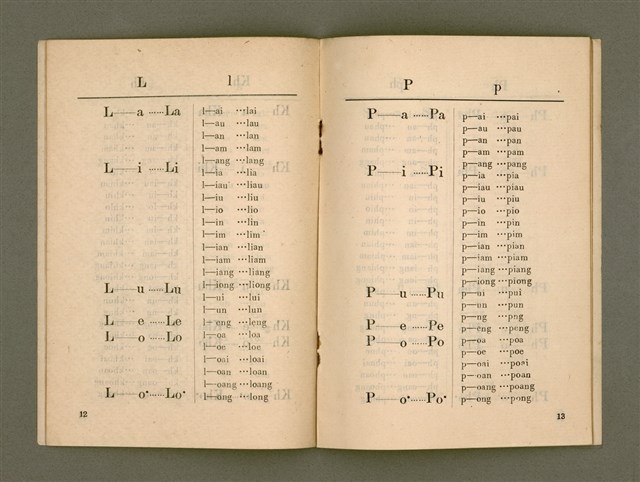 L l
L—a ······La l—ai ···lai
l—au ···lau
l—an ···lan
l—am ···lam
l—ang ···lang
L—i ······Li l—ia ···lia
l—iau ···liau
l—iu ···liu
l—io ···lio
l—in ···lin
l—im ···lim
l—ian ···lian
l—iam ···liam
l—iang ···liang
l—iong ···liong
L—u ······Lu l—ui ···lui
l—un ···lun
L—e ······Le l—eng ···leng
L—o ······Lo l—oa ···loa
l—oe ···loe
l—oai ···loai
l—oan ···loan
l—oang ···loang
L—o· ······Lo· l—ong ···long
12
P p
P—a ······Pa p—ai ···pai
p—au ···pau
p—an ···pan
p—am ···pam
p—ang ···pang
P—i ······Pi p—ia ···pia
p—iau ···piau
p—iu ···piu
p—io ···pio
p—in ···pin
p—im ···pim
p—ian ···pian
p—iam ···piam
p—iang ···piang
p—iong ···piong
P—u ······Pu p—ui ···pui
p—un ···pun
p—ng ···png
P—e ······Pe p—eng ···peng
P—o ······Po p—oa ···poa
p—oe ···poe
p—oai ···poai
p—oan ···poan
p—oang ···poang
P—o· ······Po· p—ong ···pong
13